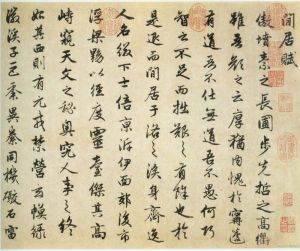 閒居賦
傲墳素之長圃步先哲之高衢
雖吾顏之云厚猶內愧於甯蘧
有道吾不仕無道吾不愚何巧
智之不足而拙艱之有餘也於
是退而閒居于洛之涘身齊逸
人名綴下士倍京泝伊面郊後市
浮梁黝以徑度靈臺傑其高
峙窺天文之秘奧究人事之終
始其西則有元戎禁營玄幙綠
徽谿子巨黍異絭同機礮石雷